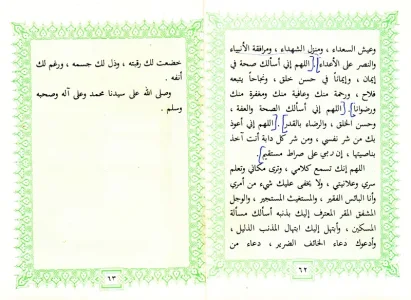 وعيش السعداء ، ومنزل الشهداء ، ومرافقة الأنبياء
والنصر على الأعداء . اللهم إني أسألك صحة في
إيمان ، وإيماناً في حسن خلق ، ونجاحاً يتبعه
فلاح ، ورحمة منك وعافية منك ومغفرة منك
ورضواناً . اللهم إني أسألك الصحة والعفة ،
وحسن الخلق ، والرضاء بالقدر . اللهم إني أعوذ
بك من شر نفسي ، ومن شر كل دابة أنت آخذ
بناصيتها ، إن ربي على صراط مستقيم .
اللهم إنك تسمع كلامي ، وترى مكاني وتعلم
سري وعلانيتي ، ولا يخفى عليك شيء من أمري
وأنا البائس الفقير ، والمستغيث المستجير ، والوجل
المشفق المقر المعترف إليك بذنبه أسألك مسألة
المسكين ، وأبتهل إليك ابتهال المذنب الذليل ،
وأدعوك دعاء الخائف الضرير ، دعاء من
٦٢
خضعت لك رقبته ، وذل لك جسمه ، ورغم لك
أنفه .
وصلى الله على سيدنا محمد وعلى آله وصحبه
وسلم .
٦٣